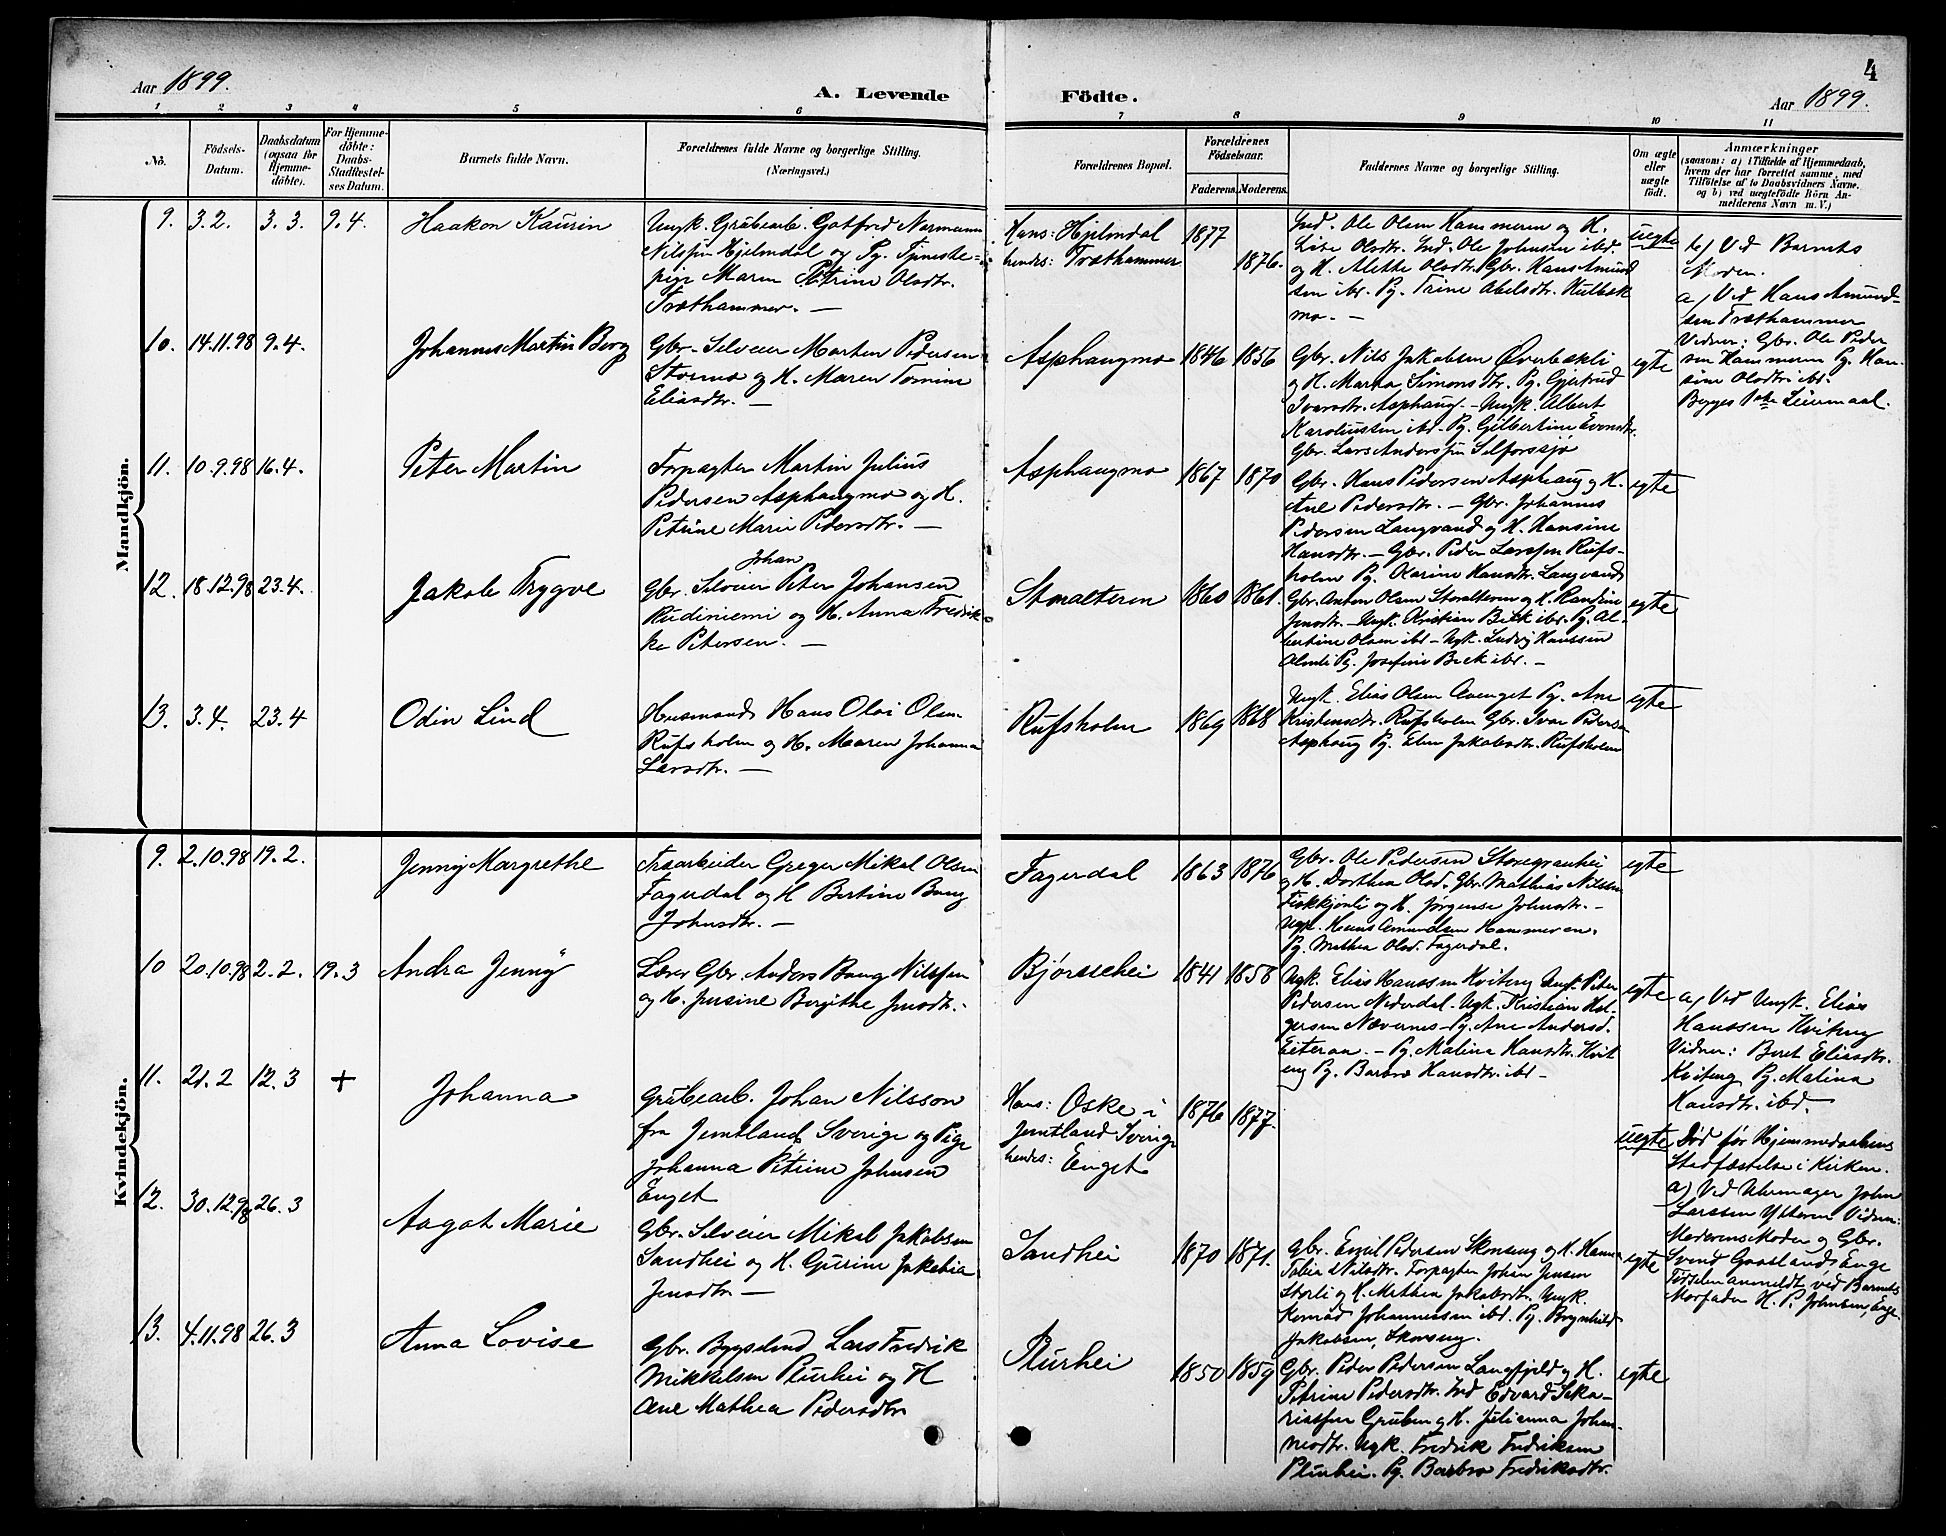 4
Aar 1899.
A. Levende Födte.
Aar 1899.
1 2 3 4 5 6 7 8 9 10 11
No.
Födsels-
Datum.
Daabsdatum
(ogsaa for
Hjemme-
döbte).
For Hjemme-
döbte:
Daabs-
Stadfæstel-
ses Datum.
Barnets fulde Navn.
Forældrenes fulde Navne og borgerlige Stilling.
(Næringsvei.)
Forældrenes Bopæl.
Forældrenes
Födselsaar.
Faderens. Moderens.
Faddernes Navne og borgerlige Stilling.
Om ægte
eller
uægte
födt.
Anmærkninger
(saasom: a) i Tilfælde af Hjemmedaab,
hvem der har forrettet samme, med
Tilföielse af to Daabsvidners Navne,
og b) ved uægtefödte Börn An-
melderens Navn m. V.)
Mandkjön.
9. 3.2. 3.3. 9.4.
Haakon Kaurin
Ungk. Grubearb. Gotfred Normann
Nilssen Hjelmdal og Pg. Tjeneste-
pige Maren Petrine Olsdtr.
Træthammer. —
Hans: Hjelmdal
hendes: Træthammer
1877
1876.
Ind. Ole Olsen Hammeren og H.
Lise Olsdtr. Ind. Ole Johnsen ibd.
og H. Alette Olsdtr. Gbr. Hans Amund
sen ibd. Pg. Trine Abelsdtr. Hulbæk
mo. —
uegte
b) Ved Barnets
Moder.
a) Ved Hans Amund-
sen Træthammer
Vidner: Gbr. Ole Peder
sen Hammeren Pg. Han-
sine Olsdtr. ibd.
Begges 1ste Leiermaal.
10. 14.11.98 9.4.
Johannes Martin Berg
Gbr. Selveier Morten Pedersen
Stormo og H. Maren Tomine
Eliasdtr. —
Asphaugmo 1846 1856
Gbr. Nils Jakobsen Øverbækli
og H. Marta Simonsdtr. Pg. Gjertrud
Ivarsdtr. Asphaug. — Ungk. Albert
Karoliussen ibd. Pg. Gilbertine Evensdtr.
Gbr. Lars Anderssen Selforssjø
egte
11. 10.9.98 16.4.
Peter Martin
Forpagter Martin Julius
Pedersen Asphaugmo og H.
Petrine Marie Pedersdtr. —
Asphaugmo 1867 1870
Gbr. Hans Pedersen Asphaug og H.
Ane Pedersdtr. — Gbr. Johannes
Pedersen Langvand og H. Hansine
Hansdtr. — Gbr. Peder Larssen Rufs-
holm Pg. Olarine Hansdtr. Langvand
egte
12. 18.12.98 23.4.
Jakob Trygve
Johan
Gbr. Selveier Peter Johansen
Rudiniemi og H. Anna Fredrik-
ke Petersen. —
Storalteren 1860 1861.
Gbr. Anton Olsen Storalteren og H. Randine
Jensdtr. — Ungk. Kristian Bech ibd. Pg. Al-
bertine Olsen ibd — Ugk. Ludvig Hanssen
Almli Pg. Josefine Beck ibd. —
egte
13. 3.4. 23.4
Odin Lind
Husmand Hans Olai Olsen
Rufsholm og H. Maren Johanna
Larsdtr. —
Rufsholm 1869 1868
Ungk. Elias Olsen Avenget Pg. Ane
Kristensdtr. Rufsholm Gbr. Ivar Peders-
Asphaug Pg. Elen Jakobsdtr. Rufsholm
egte
Kvindekjön.
9. 2.10.98 19.2.
Jenny Margrethe
Træarbeider Greger Mikal Olsen
Fagerdal og H Bertine Bang
Johnsdtr. —
Fagerdal 1863 1876
Gbr. Ole Pedersen Storegranhei
og H. Dorthea Olsd. Gbr. Mathias Nilssen
Fiskkjønli og H. Jørgense Johnsdtr. —
Ungk. Hans Amundsen Hammeren.
Pg. Mathea Olsd. Fagerdal.
egte
10 20.10.98 2.2. 19.3
Andra Jenny
Lærer Gbr. Anders Bang Nilssen
og H. Jensine Bergithe Jensdtr. —
Bjørsehei 1841 1858
Ugk. Elias Hanssen Kviteng Ungk. Peter
Pedersen Nederdal. Ugk. Kristian Hol-
gersen Nævernes — Pg. Ane Andersd.
Eiteraa. — Pg. Malina Hansdtr. Kvit
eng Pg. Barbro Hansdtr. ibd —
egte
a) Ved Ungk. Elias
Hanssen Kviteng
Vidner: Beret Eliasdtr.
Kviteng Pg. Malina
Hansdtr. ibd.
11. 21.2 12.3 +
Johanna
Grubearb. Johan Nilsson
fra Jemtland Sverige og Pige
Johanna Petrine Johnsen
Enget
Hans: Oske i
Jemtland Sverige
hendes: Enget
1876 1877.
uegte
Død før Hjemmedaabens
Stadfæstelse i Kirken.
a) Ved Uhrmager John
Larssen Ytteren Vidner:
Moderens Moder og Gbr.
Svend Gaasland Enge
Fødselen anmeldt ved Barnets
Morfader H. P. Johnsen, Enge
12. 30.12.98 26.3
Aagot Marie
Gbr. Selveier Mikal Jakobsen
Sandhei og H. Gurine Jakobia
Jensdtr —
Sandhei 1870 1871.
Gbr. Emil Pedersen Skonseng og H. Hanna
Tobia Nilsdtr. Forpagter Johan Jensen
Storli og H. Mathea Jakobsdtr. Ungk.
Konrad Johannessen ibd. Pg. Brynhild
Jakobsen, Skonseng.
egte
13. 4.11.98 26.3
Anna Lovise
Gbr. Bygselmd Lars Fredrik
Mikkelsen Plurhei og H
Ane Mathea Pedersdtr
Plurhei 1850 1859
Gbr. Peder Pedersen Langfjeld og H.
Petrine Pedersdtr. Ind Edvard Seka-
riassen Gruben og H. Julianna Johan-
nesdtr. Ugk. Fredrik Fredriksen
Plurhei. Pg. Barbro Fredriksdtr.
egte